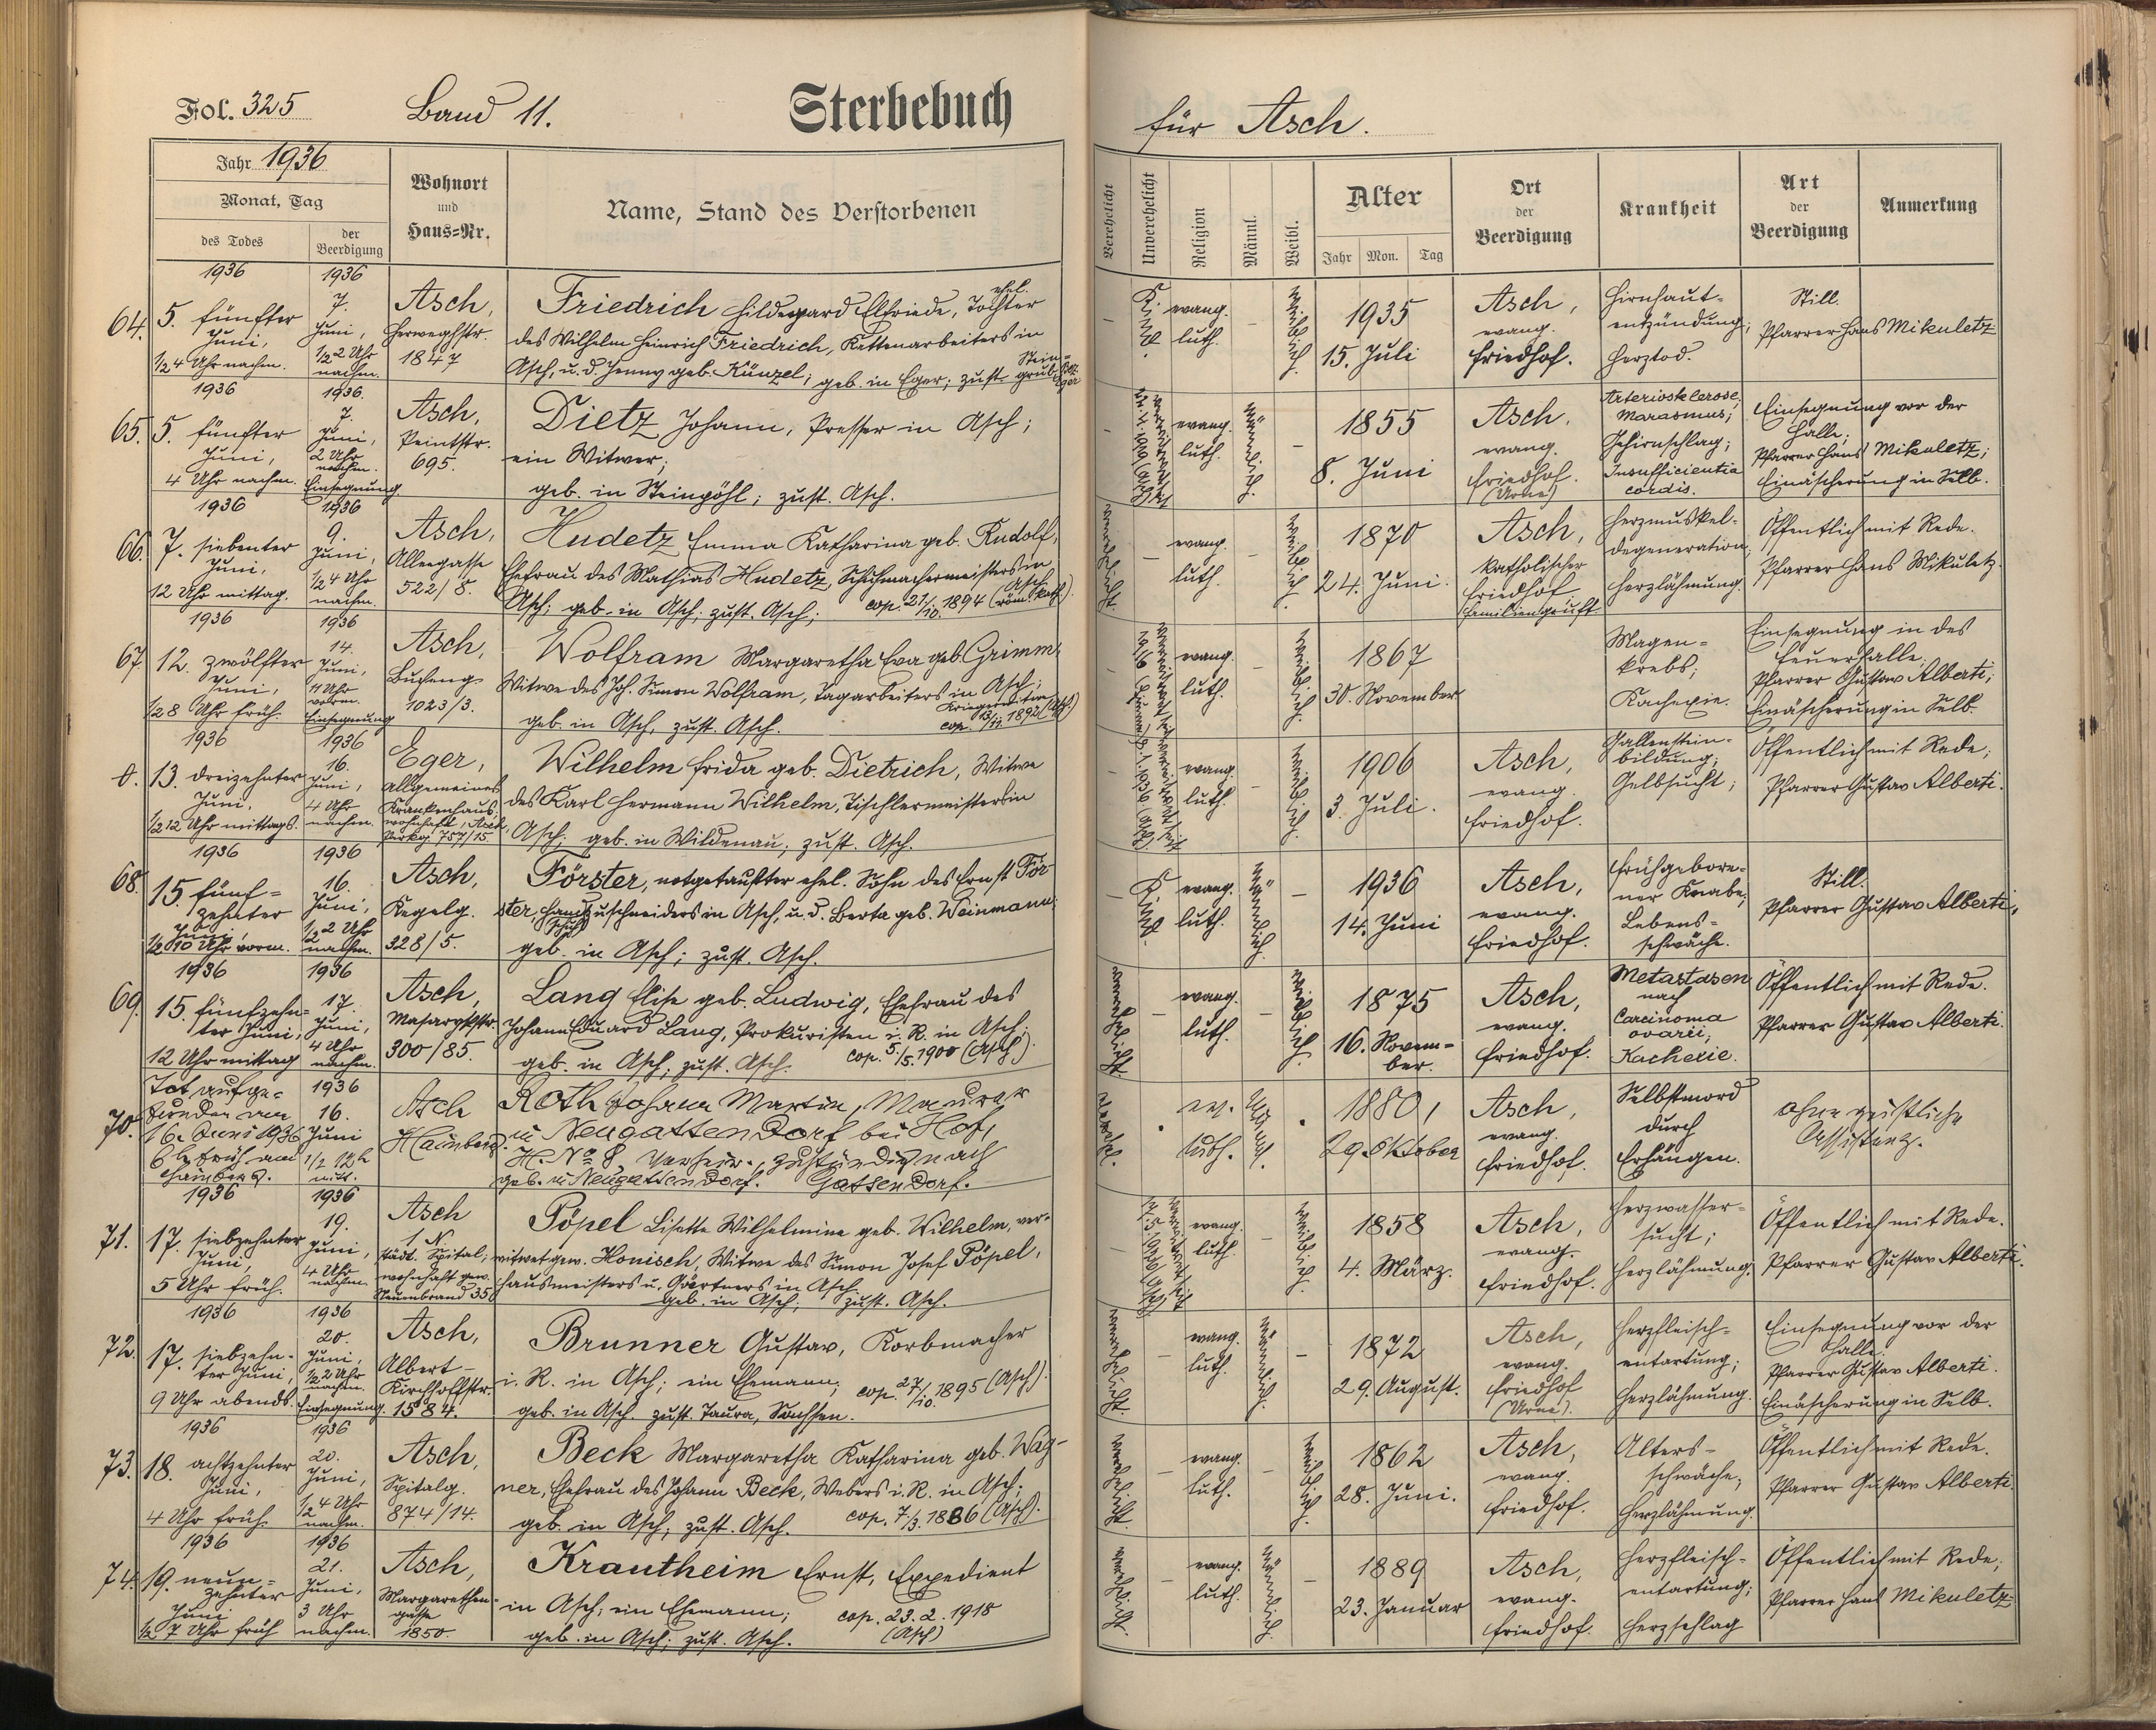 Fol. 325 Band 11. Sterbebuch
für Asch.
Jahr 1936
Monat, Tag
des Todes
der Beerdigung
Wohnort
und
Haus=Nr.
Name, Stand des Verstorbenen
Verehelicht
Unverehelicht
Religion
Männl.
Weibl.
Alter
Jahr Mon. Tag
Ort
der
Beerdigung
Krankheit
Art
der
Beerdigung
Anmerkung
64.
1936
5. fünfter
Juni,
1/2 4 Uhr nachm.
1936
7.
Juni,
1/2 2 Uhr
nachm.
Asch,
Herweghstr.
1847
ehel.
Friedrich Hildegard Elfriede, Tochter
des Wilhelm Heinrich Friedrich, Kettenarbeiters in
Asch, u. d. Jenny geb. Künzel; geb. in Eger; zust. Stein=
grub, Bez.
Eger
Kind
evang.
luth.
weiblich
1935
15. Juli
Asch,
evang.
Friedhof.
Hirnhaut=
entzündung;
Herztod.
Still.
Pfarrer Hans Mikuletz
65.
1936
5. fünfter
Juni,
4 Uhr nachm.
1936.
7.
Juni,
2 Uhr
nachm.
Einsegnung
Asch,
Peintstr.
695.
Dietz Johann, Presser in Asch;
ein Witwer;
geb. in Steinpöhl; zust. Asch.
evang.
luth.
männlich
1855
8. Juni
Asch,
evang.
Friedhof.
(Urne)
Arteriosklerose,
Marasmus;
Gehirnschlag;
Insufficientia
cordis.
Einsegnung vor der
Halle;
Pfarrer Hans Mikuletz;
Einäscherung in Selb.
66.
1936
7. siebenter
Juni,
12 Uhr mittag.
1936
9.
Juni,
1/2 4 Uhr
nachm.
Asch,
Alleegasse
522/8.
Hudetz Emma Katharina geb. Rudolf,
Ehefrau des Mathias Hudetz, Schuhmachermeisters in
Asch; geb. in Asch; zust. Asch; cop. 21/10. 1894 (Asch
röm. kath.)
verehelicht
evang.
luth.
weiblich
1870
24. Juni.
Asch,
katholischer
Friedhof
Familiengruft
Herzmuskel=
degeneration,
Herzlähmung.
Öffentlich mit Rede.
Pfarrer Hans Mikuletz.
67.
1936
12. zwölfter
Juni,
1/2 8 Uhr früh.
1936
14.
Juni,
11 Uhr
vorm.
Einsegnung
Asch,
Bucheng.
1023/3.
Wolfram Margaretha Eva geb. Grimm,
Witwe des Joh. Simon Wolfram, Tagarbeiters in Asch;
geb. in Asch, zust. Asch.
evang.
luth.
weiblich
1867
30. November
Magen=
krebs;
Kachexie.
Einsegnung in des
Feuerhalle,
Pfarrer Gustav Alberti;
Einäscherung in Selb.
0.
1936
13. dreizehnter
Juni,
1/2 12 Uhr mittags.
1936
16.
Juni,
4 Uhr
nachm.
Eger,
Allgemeines
Krankenhaus;
wohnhaft, Asch,
Parkg. 757/15
Wilhelm Frida geb. Dietrich, Witwe
des Karl Hermann Wilhelm, Tischlermeisters in
Asch; geb. in Wildenau; zust. Asch.
evang.
luth.
weiblich
1906
3. Juli.
Asch,
evang.
Friedhof.
Gallenstein=
bildung;
Gelbsucht;
Öffentlich mit Rede;
Pfarrer Gustav Alberti.
68.
1936
15. fünf=
zehnter
Juni,
1/2 10 Uhr vorm.
1936
16.
Juni,
1/2 2 Uhr
nachm.
Asch,
Kegelg.
328/5.
Förster, notgetaufter ehel. Sohn des Ernst För=
ster, Handschuhzuschneiders in Asch, u. d. Berta geb. Weinmann;
geb. in Asch; zust. Asch.
Kind
evang.
luth.
männlich
1936
14. Juni
Asch,
evang.
Friedhof.
Frühgebore=
ner Knabe;
Lebens=
schwäche.
Still.
Pfarrer Gustav Alberti,
69.
1936
15. fünfzehn=
ter Juni,
12 Uhr mittag
1936
17.
Juni,
4 Uhr
nachm.
Asch,
Masarykstr.
300/85.
Lang Elise geb. Ludwig, Ehefrau des
Johann Eduard Lang, Prokuristen i. R. in Asch;
geb. in Asch; zust. Asch. cop. 5/5. 1900 (Asch).
verehelicht
evang.
luth.
weiblich
1875
16. Novem=
ber.
Asch,
evang.
Friedhof.
Metastasen
nach
Carcinoma
ovarii;
Kachexie.
Öffentlich mit Rede.
Pfarrer Gustav Alberti.
70.
Tot aufge=
funden am
16. Juni 1936
6 h früh am
Hainberg.
1936
16.
Juni
1/2 12 h
mitt.
Asch
Hainberg.
Roth Johann Martin, Maurer
in Neugattendorf bei Hof,
H. No 8, verheir., zuständig nach
geb. in Neugattendorf. Gattendorf.
verehel.
ev.
luth.
Männl.
1880,
29. Oktober
Asch,
evang.
Friedhof.
Selbstmord
durch
Erhängen.
Ohne geistliche
Assistenz.
71.
1936
17. siebzehnter
Juni,
5 Uhr früh.
1936
19.
Juni,
4 Uhr
nachm.
Asch
1 N.
städt. Spital;
wohnhaft gew.
Neuenbrand 35
Pöpel Lisette Wilhelmine geb. Wilhelm, ver=
witwet gew. Honisch, Witwe des Simon Josef Pöpel,
Hausmeisters u. Gärtners in Asch
geb. in Asch; zust. Asch.
evang.
luth.
weiblich
1858
4. März.
Asch,
evang.
Friedhof.
Herzwasser=
sucht;
Herzlähmung.
Öffentlich mit Rede.
Pfarrer Gustav Alberti.
72.
1936
17. siebzehn=
ter Juni,
9 Uhr abends.
1936
20.
Juni,
1/2 2 Uhr
nachm.
Einsegnung.
Asch,
Albert=
Kirchhoffstr.
1584.
Brunner Gustav, Korbmacher
i. R. in Asch; ein Ehemann; cop. 27/10. 1895 (Asch).
geb. in Asch. zust. Taura, Sachsen.
verehelicht
evang.
luth.
männlich
1872
29. August.
Asch,
evang.
Friedhof
(Urne).
Herzfleisch=
entartung;
Herzlähmung.
Einsegnung vor der
Halle.
Pfarrer Gustav Alberti.
Einäscherung in Selb.
73.
1936
18. achtzehnter
Juni,
4 Uhr früh.
1936
20.
Juni,
1/2 4 Uhr
nachm.
Asch,
Spitalg.
874/14.
Beck Margaretha Katharina geb. Wag=
ner, Ehefrau des Johann Beck, Webers i. R. in Asch;
geb. in Asch; zust. Asch. cop. 7/3. 1886 (Asch).
verehelicht
evang.
luth.
weiblich
1862
28. Juni.
Asch,
evang.
Friedhof.
Alters=
schwäche;
Herzlähmung.
Öffentlich mit Rede.
Pfarrer Gustav Alberti.
74.
1936
19. neun=
zehnter
Juni
1/2 7 Uhr früh
1936
21.
Juni,
3 Uhr
nachm.
Asch,
Margarethen=
gasse
1850.
Krautheim Ernst, Expedient
in Asch; ein Ehemann; cop. 23. 2. 1918
(Asch)
geb. in Asch; zust. Asch.
verehelicht
evang.
luth.
männlich
1889
23. Januar
Asch,
evang.
Friedhof.
Herzfleisch=
entartung;
Herzschlag
Öffentlich mit Rede;
Pfarrer Hans Mikuletz